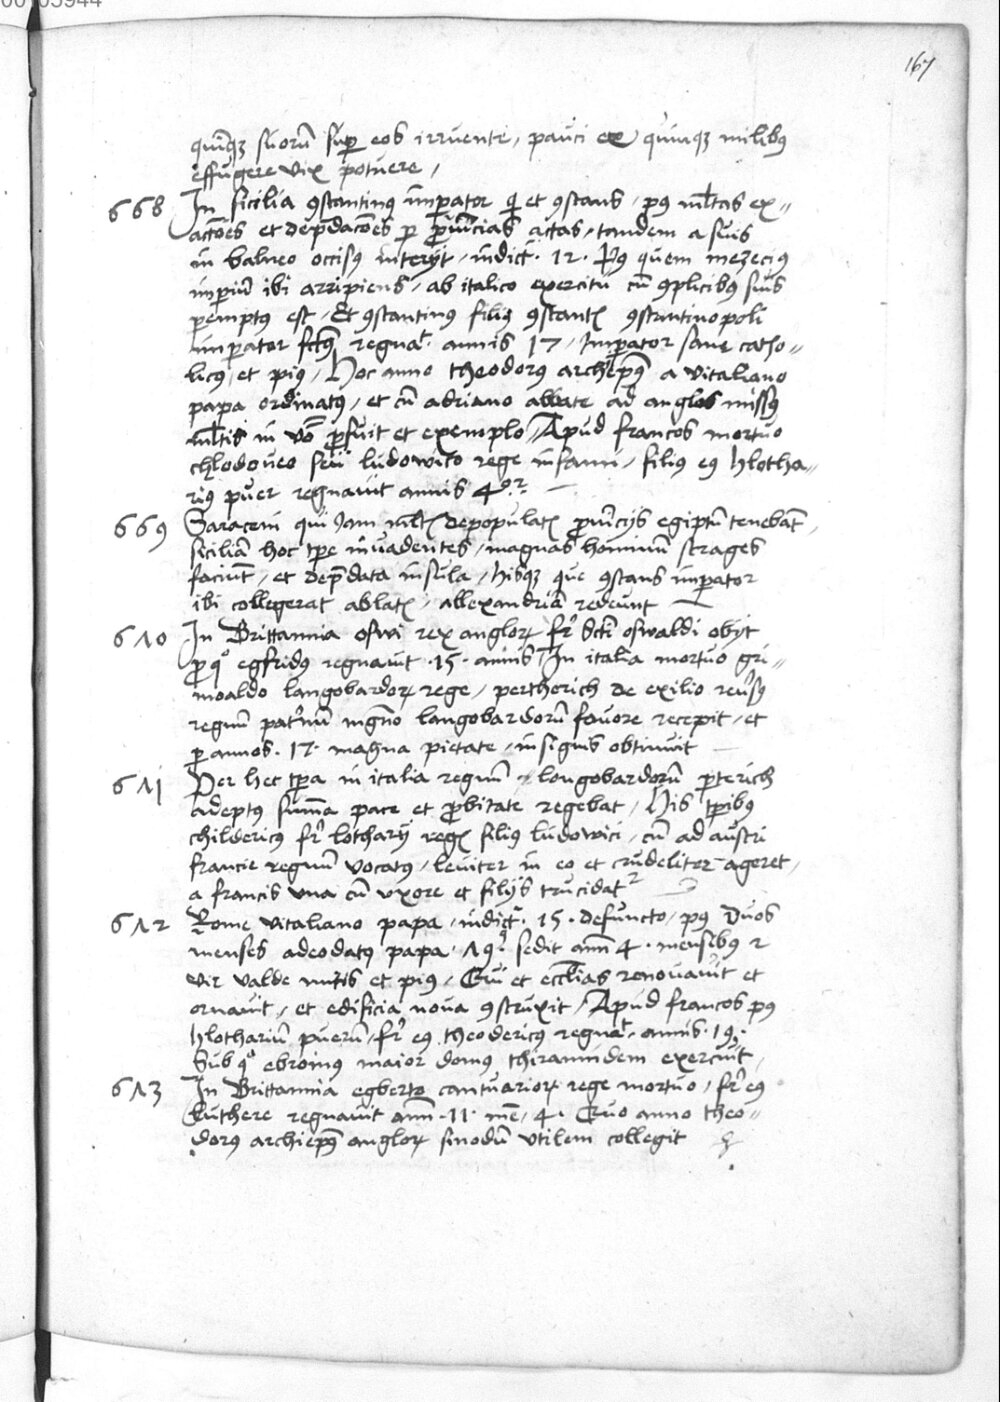 00105944
167
quinqꝫ suorū suꝑ eos irruente, pauci ex quinqꝫ milibꝰ
effugere vix potuere,
668 In sicilia ꝯstantinꝰ imꝑator qi et ꝯstans, pꝰ ml̄tas ex=
actōes et dep̄dacōes ꝑ ꝓuīcias actas, tandem a suis
in balneo occisꝰ interijt, indict̄. 12. Pꝰ quem mezeciꝰ
imꝑiū ibi arripiens, ab italico exercitu cū ꝯplicibꝰ suis
ꝑemptꝰ est, Et ꝯstantinꝰ filiꝰ ꝯstantꝭ ꝯstantinopoli
imꝑator fctꝰ regnāt. annis 17, Imꝑator sane catho=
licꝰ, et piꝰ, Hoc anno theodorꝰ archiep̄ꝰ a vitaliano
papa ordinatꝰ, et cū adriano abbate ad anglos missꝰ
ml̄tis in v̄o ꝓfuit et exemplo, Apud francos mortuo
chlodoueo seu ludowico rege infanti, filiꝰ eꝰ hlotha=
riꝰ puer regnauit annis 4ᵒʳ
669 Saraceni qui Iam ml̄tꝭ depopulatꝭ ꝓuīcijs egiptū tenebāt,
siciliā hoc tp̄e inuadentes, magnas hominū strages
faciūt, et dep̄data insula, hisqꝫ que ꝯstans imꝑator
ibi collegerat ablatꝭ, allexandriā redeunt
6Λ0 In Brittannia oswi rex angloꝝ fr̄ sctī oswaldi obijt
ꝓ qͦ egfridꝰ regnauit .15. annis, In italia mortuo gri=
moaldo langobardoꝝ rege, pertherich de exilio reūsꝰ
regnū pat̄nū mḡno langobardorū fauore recepit, et
ꝑ annos. 17. magna pietate, insignis obtinuit
6Λ1 Per hec tp̄a in italia regnū longobardorū ꝑterich
adeptꝰ sum̄a pace et ꝓbitate regebat, His tp̄ibꝰ
childericꝰ fr̄ lotharij regꝭ filiꝰ ludowici, cū ad austri
francie regnū vocatꝰ, leuiter in eo et crudeliter ageret,
a francis vna cū vxore et filijs trucidatᷣ
6Λ2 Rome vitaliano papa, indict̄. 15. defuncto, pꝰ duos
menses adeodatꝰ papa. Λ9ꝰ. sedit ann̄ 4. mensibꝰ 2
vir valde mitis et piꝰ, Qui et eccl̄ias renouauit et
ornauit, et edificia noua ꝯstruxit, Apud francos pꝰ
hlothariū puerū, fr̄ eꝰ theodericꝰ regnāt. annis. 19.
Sub qͦ ebroinꝰ maior domꝰ thirannidem exercuit,
6Λ3 In Brittannia egberto cantuarioꝝ rege mortuo, fr̄ eꝰ
luthere regnauit ann̄ .11. mē. 4. Quo anno theo=
dorꝰ archiep̄ꝰ angloꝝ sinodū vtilem collegit